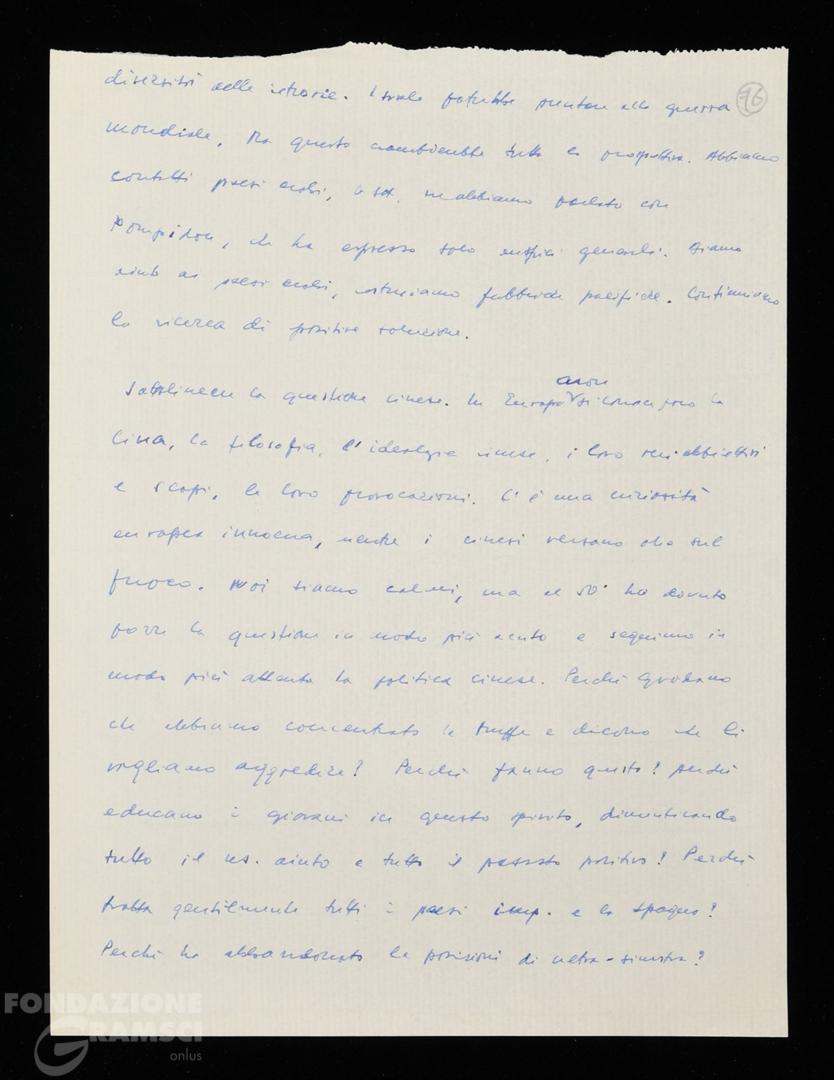 diversità delle storie. Israele potrebbe puntare alla guerra 76
mondiale, ma questo cambierebbe tutta la prospettiva. Abbiamo
contatti paesi arabi, ne abbiamo parlato con
Pompidou, che ha espresso solo auspici generali. Diamo
aiuto ai paesi arabi, costruiamo fabbriche pacifiche. Continuiamo
la ricerca di positive soluzione.
Sottolineare la questione cinese. In Europa non si conoscono la
Cina, la filosofia, l'ideologia cinese, i loro obbiettivi
e scopi, le loro provocazioni. C'è una curiosità
europea innocua, mentre i cinesi versano olio sul
fuoco. Noi siamo calmi, ma ha dovuto
porre la questione in modo più acuto e seguiamo in
modo più attento la politica cinese. Perché gridano
che abbiamo concentrato le truppe e dicono che li
vogliamo aggredire? Perché fanno questo? perché
educano i giovani in questo spirito, dimenticando
tutto il ns. aiuto e tutto il passato positivo? Perché
tratta gentilmente tutti i paesi imp. e la Spagna?
Perché ha abbandonato le posizioni di ultra-sinistra?
FONDAZIONE
GRAMSCI
onlus